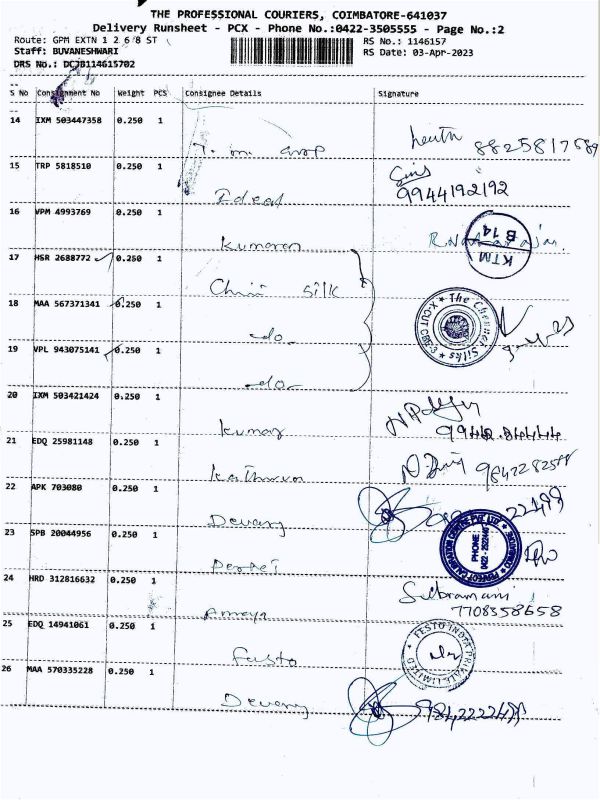 THE PROFESSIONAL COURIERS, COIMBATORE-641037
Delivery Runsheet - PCX - Phone No.:0422-3505555 - Page No.:2
Route: GPM EXTN 1 2 6 8 ST RS No.: 1146157
Staff: BUVANESHWARI RS Date: 03-Apr-2023
DRS No.: DCJB114615702
S No Consignment No Weight PCS Consignee Details Signature
14 IXM 503447358 0.250 1
8825817589
15 TRP 5818510 0.250 1
Ideal 9944192192
16 VPM 4993769 0.250 1
Kumaran KTM B 14
17 HSR 2688772 0.250 1
Chini silk
18 MAA 567371341 0.250 1
-do- The Chennai Silks
19 VPL 943075141 0.250 1
-do-
20 IXM 503421424 0.250 1
Kumar
21 EDQ 25981148 0.250 1
9842282588
22 APK 703080 0.250 1
Devang
23 SPB 20044956 0.250 1
PHONE
24 HRD 312816632 0.250 1
Amaya Subramani
7708358658
25 EDQ 14941061 0.250 1
Festo FESTO INDIA PRIVATE LIMITED
26 MAA 570335228 0.250 1
Devang